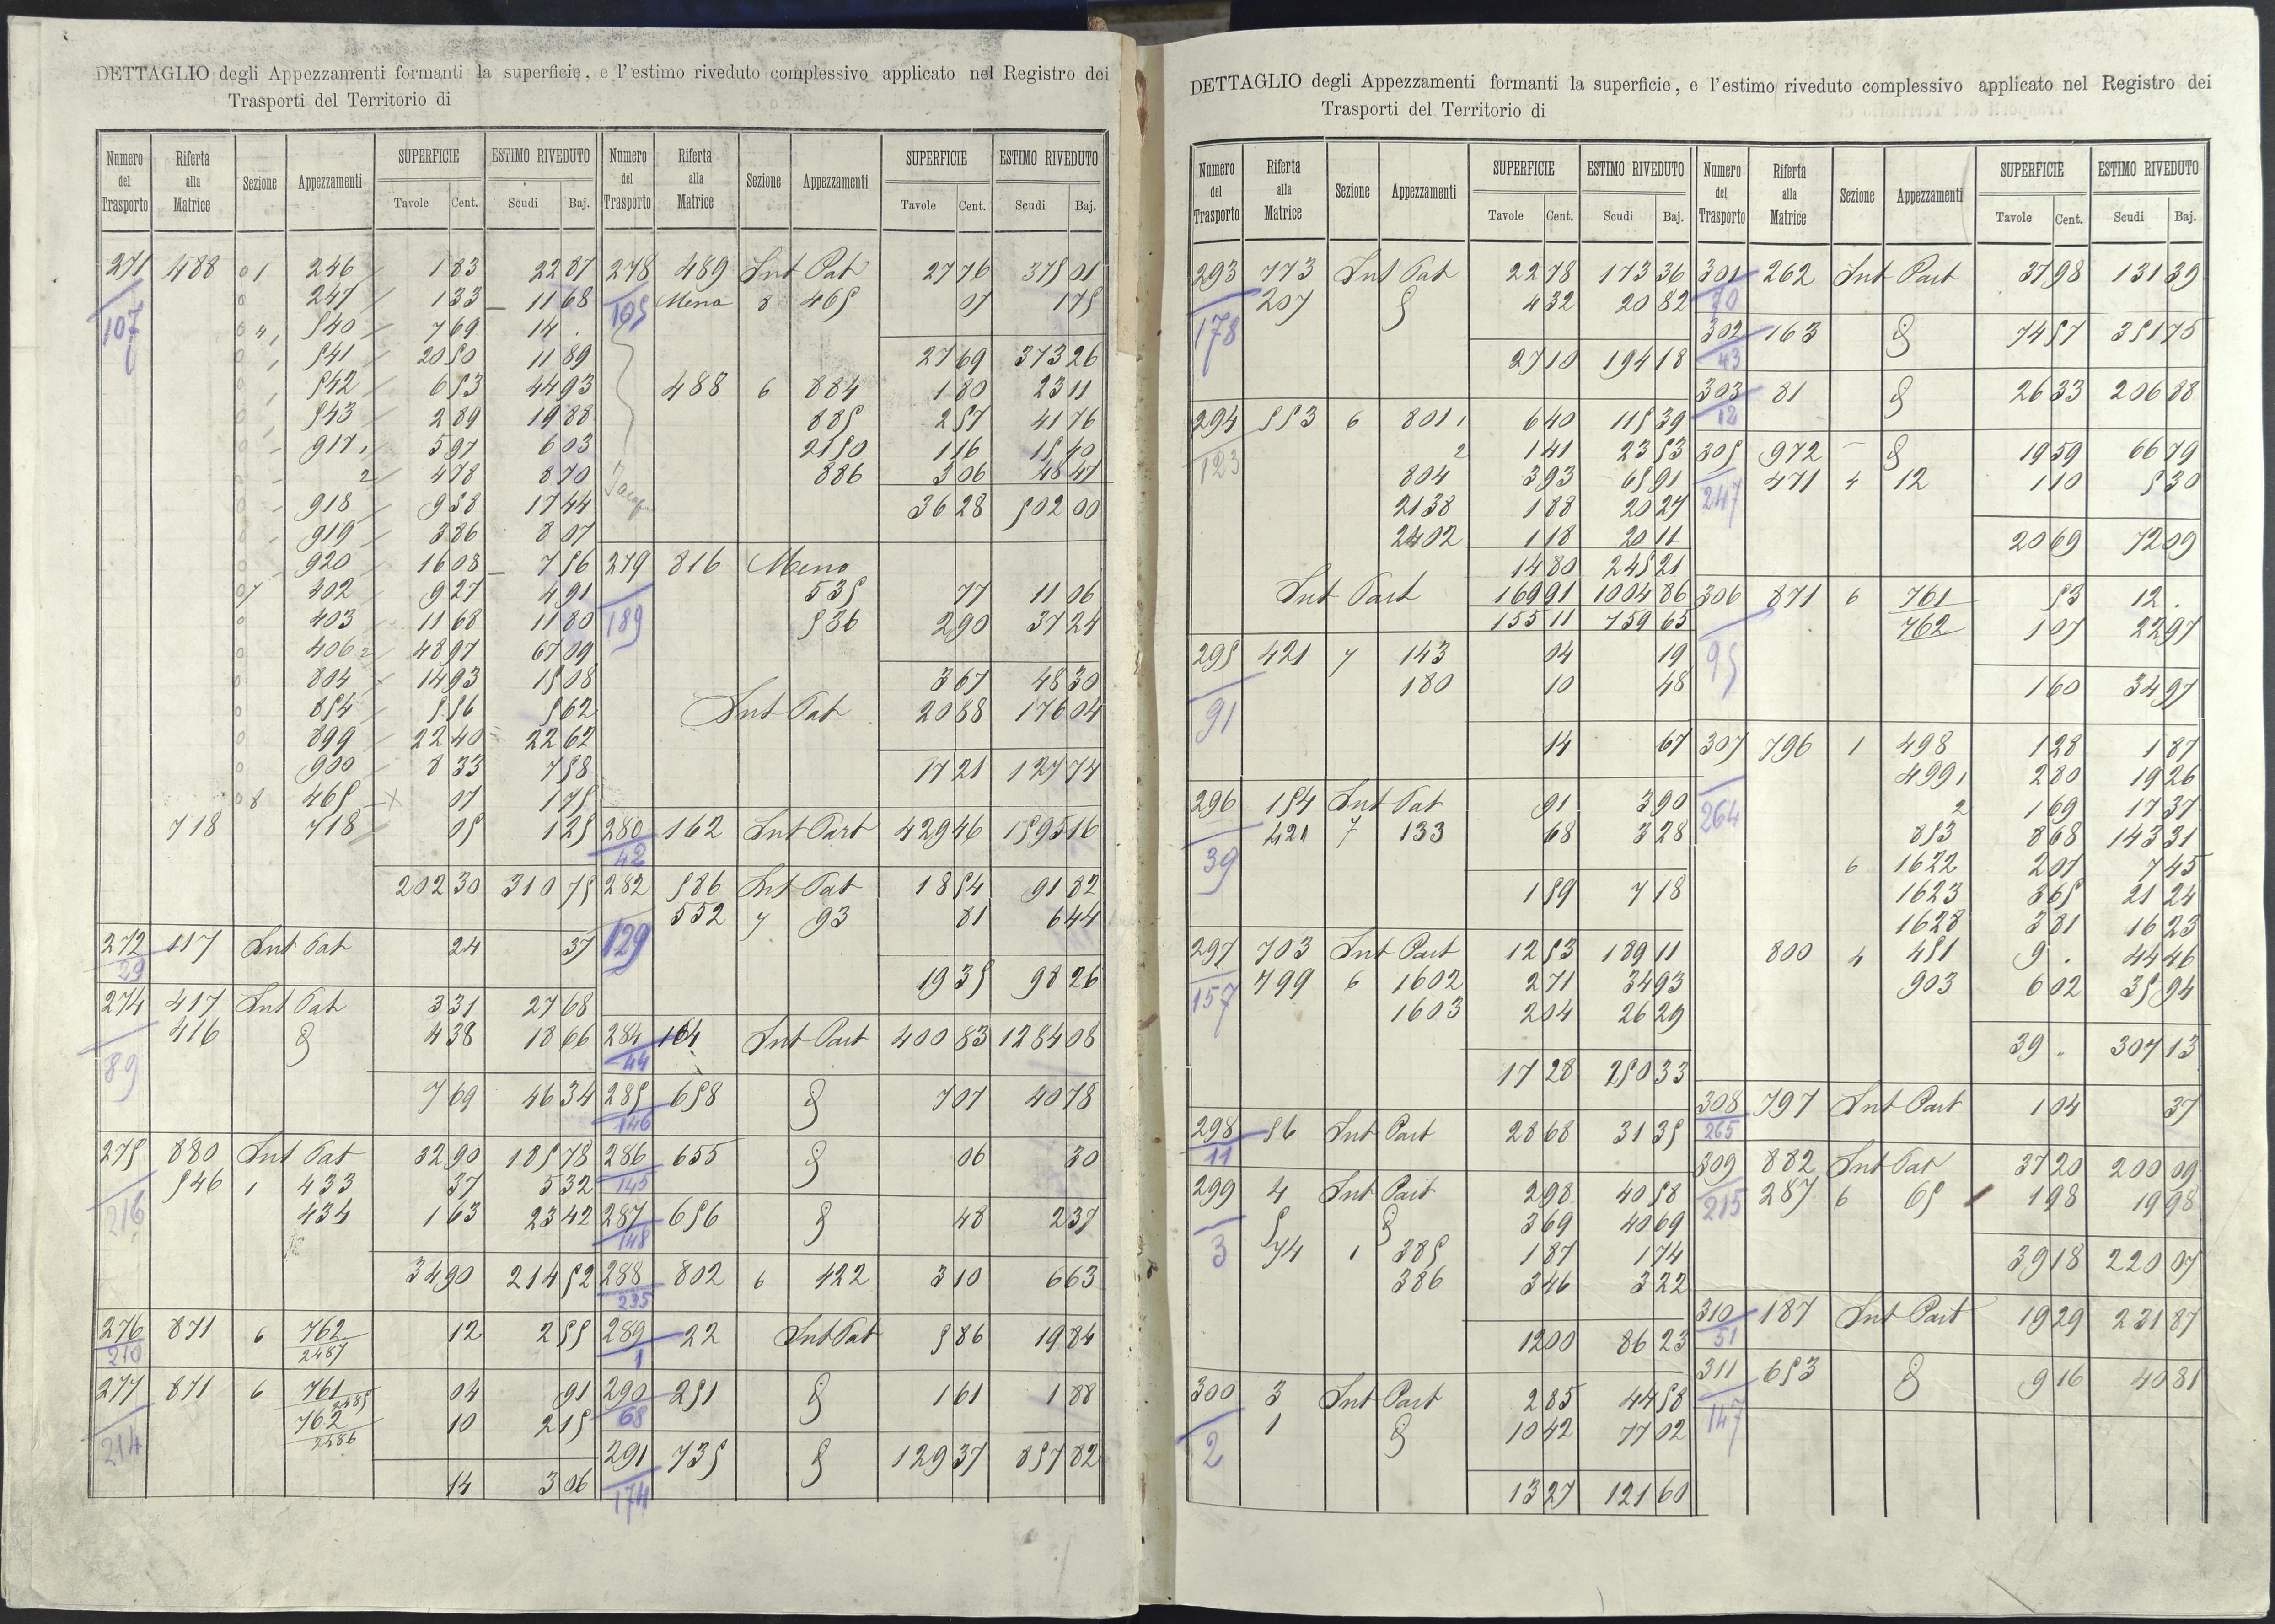 DETTAGLIO degli Appezzamenti formanti la superficie, e l'estimo riveduto complessivo applicato nel Registro dei
Trasporti del Territorio di
Numero del Trasporto Riferta alla Matrice Sezione Appezzamenti SUPERFICIE Tavole Cent. ESTIMO RIVEDUTO Scudi Baj.
271 488 1 246 1 83 22 87
107 247 1 33 11 68
4 540 7 69 14 .
541 20 50 11 89
542 6 53 44 93
543 2 89 19 88
917 1 5 97 6 03
2 4 78 8 70
918 9 58 17 44
919 3 86 8 07
920 16 08 7 56
7 402 9 27 4 91
403 11 68 11 80
406 2 48 97 67 09
804 14 93 15 08
854 5 56 5 62
899 22 40 22 62
900 8 33 7 58
8 465 07 1 75
718 718 05 1 25
202 30 310 75
272 117 Int Pat 24 37
29
274 417 Int Pat 3 31 27 68
89 416 § 4 38 18 66
7 69 46 34
275 880 Int Pat 32 90 185 78
216 546 1 433 37 5 32
434 1 63 23 42
34 90 214 52
276 871 6 762 12 2 55
210 2487
277 871 6 761 04 91
2485
214 762 10 2 15
2486
14 3 06
Numero del Trasporto Riferta alla Matrice Sezione Appezzamenti SUPERFICIE Tavole Cent. ESTIMO RIVEDUTO Scudi Baj.
278 489 Int Pat 27 76 375 01
105 Meno 8 465 07 1 75
27 69 373 26
488 6 884 1 80 23 11
885 2 57 41 76
2150 1 16 15 40
886 3 06 48 47
36 28 502 00
279 816 Meno
189 535 77 11 06
536 2 90 37 24
3 67 48 30
Int Pat 20 88 176 04
17 21 127 74
280 162 Int Part 429 46 1595 16
42
282 586 Int Pat 18 54 91 82
129 552 7 93 81 6 44
19 35 98 26
284 164 Int Part 400 83 1284 08
44
285 658 § 7 07 40 78
146
286 655 § 06 30
145
287 656 § 48 2 37
148
288 802 6 422 3 10 6 63
235
289 22 Int Pat 5 86 19 84
1
290 251 § 1 61 1 88
68
291 735 § 129 37 857 82
174
DETTAGLIO degli Appezzamenti formanti la superficie, e l'estimo riveduto complessivo applicato nel Registro dei
Trasporti del Territorio di
Numero del Trasporto Riferta alla Matrice Sezione Appezzamenti SUPERFICIE Tavole Cent. ESTIMO RIVEDUTO Scudi Baj.
293 773 Int Pat 22 78 173 36
178 207 § 4 32 20 82
27 10 194 18
294 553 6 801 1 6 40 115 39
123 2 1 41 23 53
804 3 93 65 91
2138 1 88 20 27
2402 1 18 20 11
14 80 245 21
Int Part 169 91 1004 86
155 11 759 65
295 421 7 143 04 19
91 180 10 48
14 67
296 154 Int Pat 91 3 90
39 421 7 133 68 3 28
1 59 7 18
297 703 Int Part 12 53 189 11
157 799 6 1602 2 71 34 93
1603 2 04 26 29
17 28 250 33
298 56 Int Part 28 68 31 35
11
299 4 Int Part 2 98 40 58
3 5 § 3 69 40 69
74 1 385 1 87 1 74
386 3 46 3 22
12 00 86 23
300 3 Int Part 2 85 44 58
2 1 § 10 42 77 02
13 27 121 60
Numero del Trasporto Riferta alla Matrice Sezione Appezzamenti SUPERFICIE Tavole Cent. ESTIMO RIVEDUTO Scudi Baj.
301 262 Int Part 37 98 131 39
70
302 163 § 74 57 351 75
43
303 81 § 26 33 206 88
12
305 972 § 19 59 66 79
247 471 4 12 1 10 5 30
20 69 72 09
306 871 6 761 53 12 .
95 762 1 07 22 97
1 60 34 97
307 796 1 498 1 28 1 87
264 499 1 2 80 19 26
2 1 69 17 37
853 8 68 143 31
6 1622 2 07 7 45
1623 3 65 21 24
1628 3 81 16 23
800 4 451 9 . 44 46
903 6 02 35 94
39 . 307 13
308 797 Int Part 1 04 37
265
309 882 Int Pat 37 20 200 09
215 287 6 65 1 98 19 98
39 18 220 07
310 187 Int Part 19 29 231 87
51
311 653 § 9 16 40 81
147